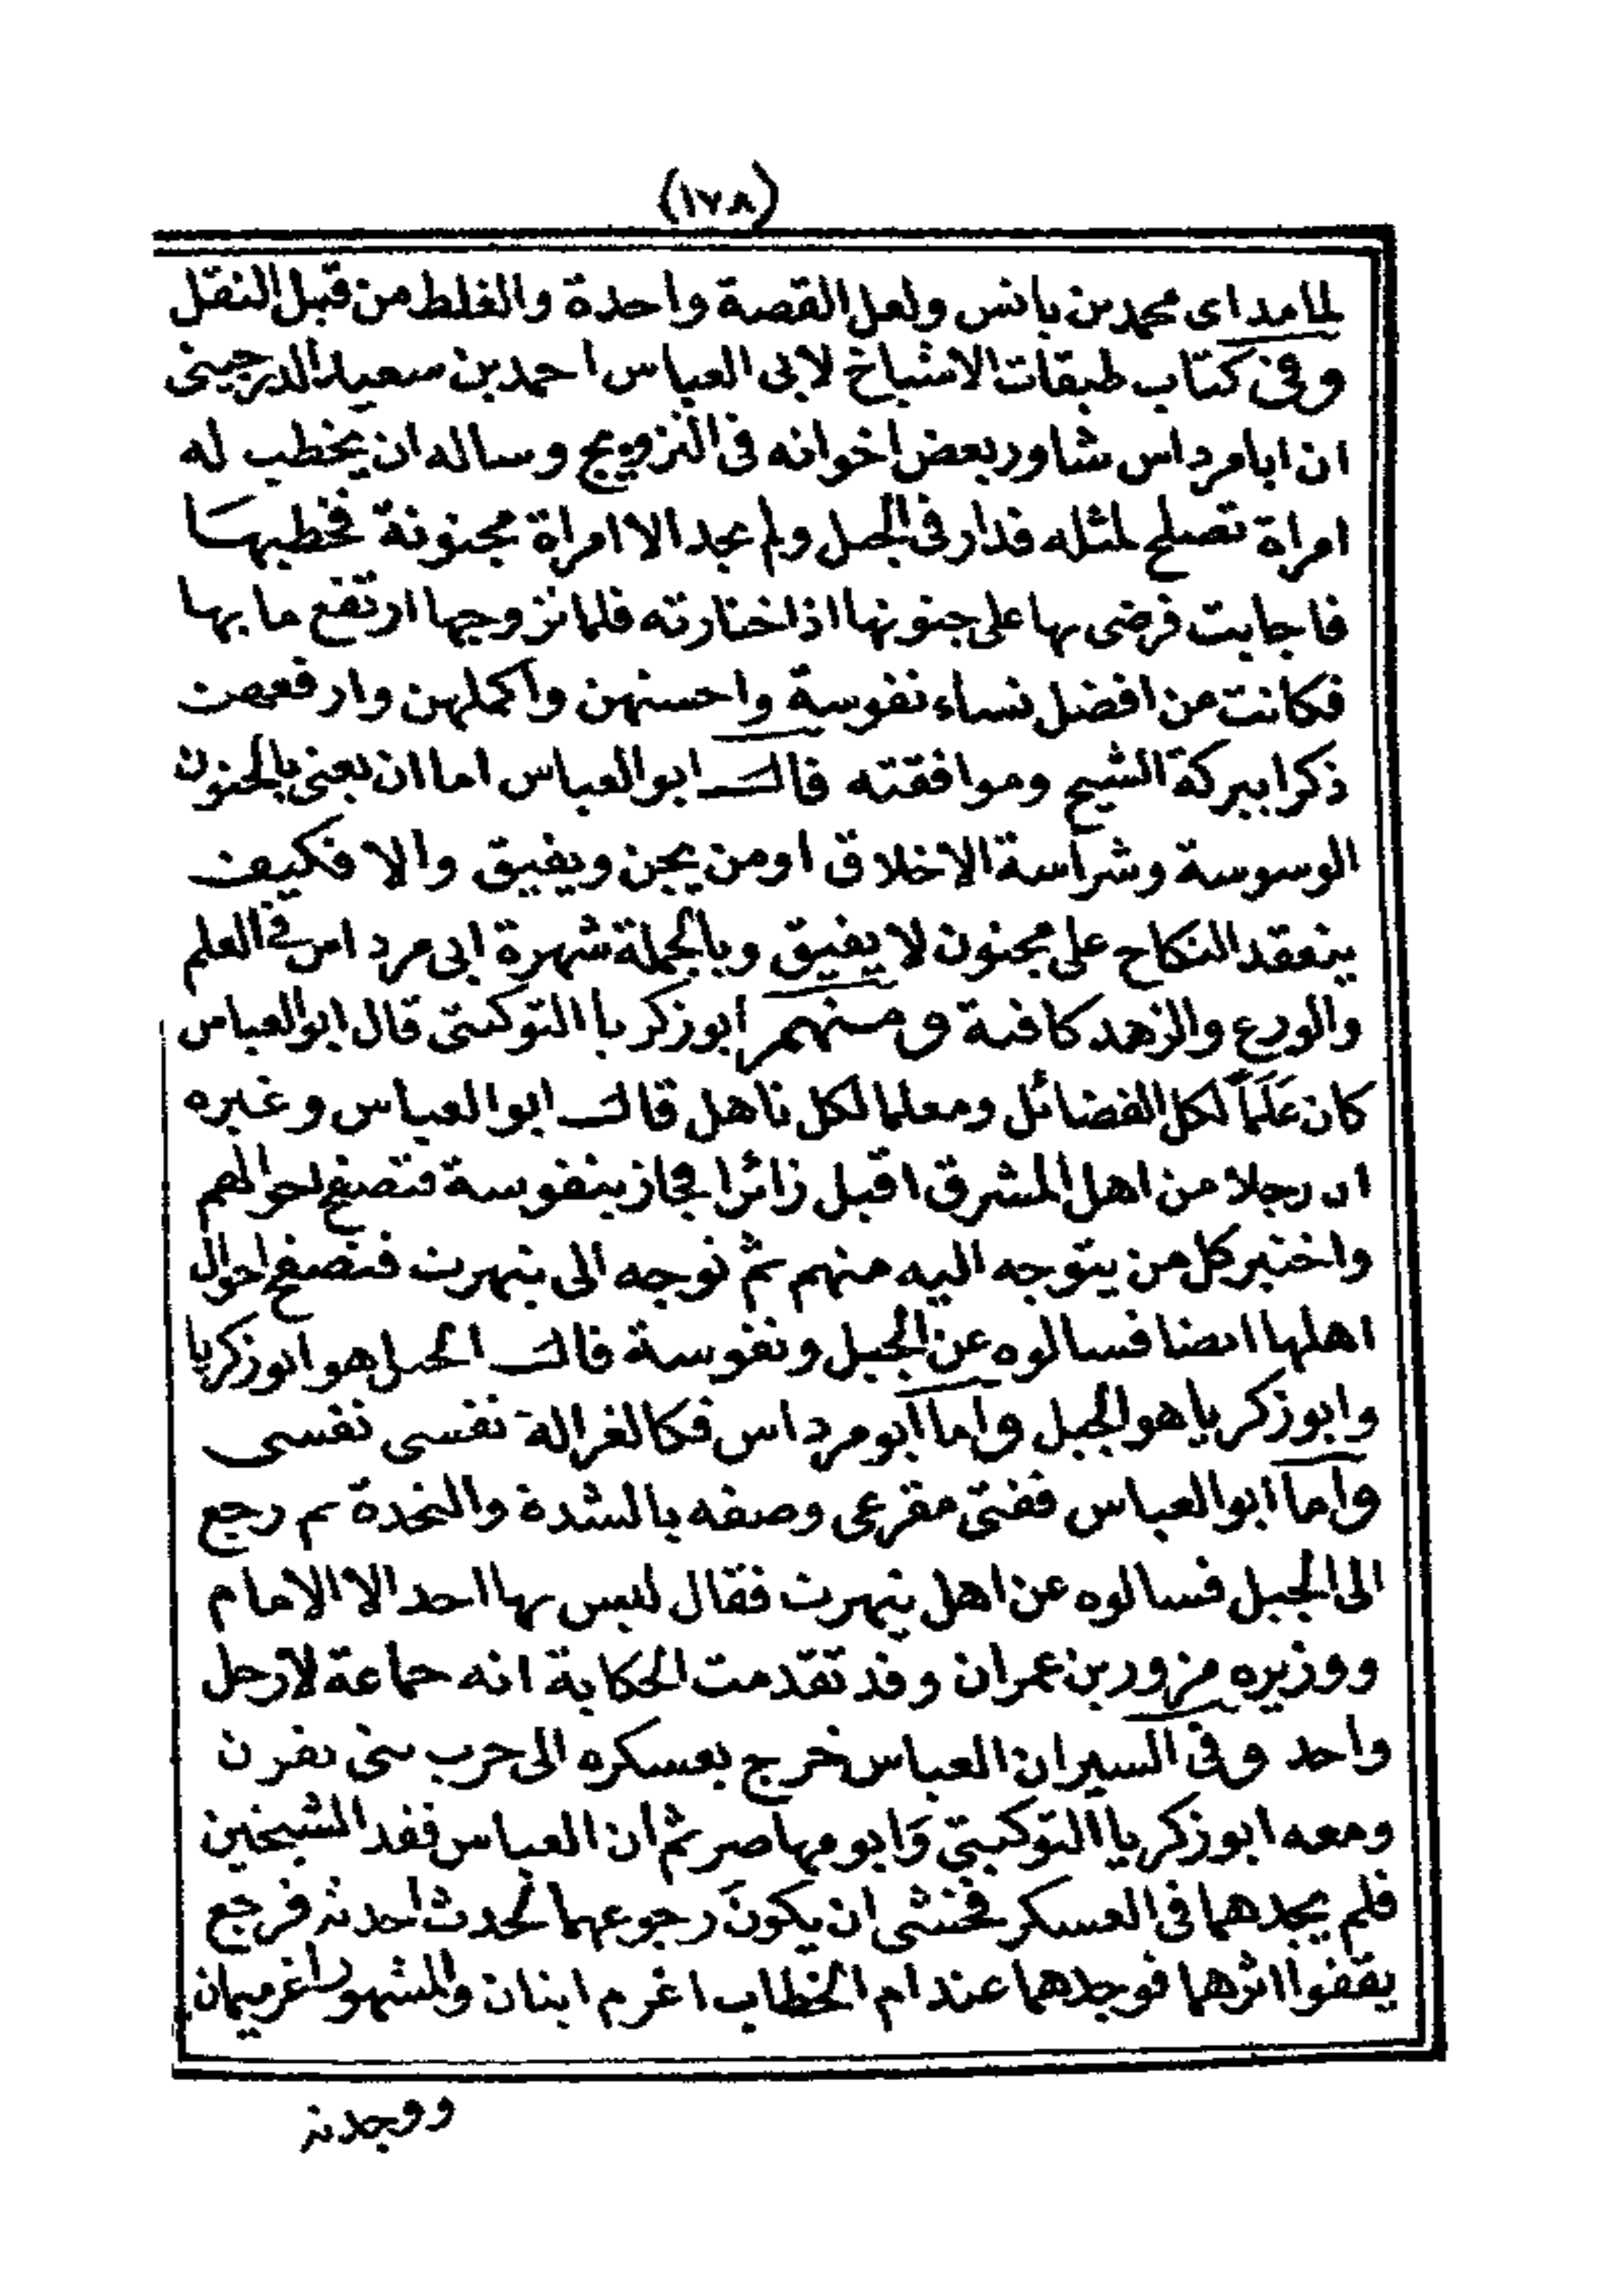 (١٧٨)
لما مد اى محمد بن يانس ولعل القصة واحدة والغلط من قبل النقل
وفى كتاب طبقات الاشياخ لابى العباس احمد بن سعيد الدرجينى
ان ابا مرداس شاور بعض اخوانه فى التزويج وساله ان يخطب له
امراة تصلح لمثله فدار فى الجبل ولم يجد الا امراة مجنونة فخطبهَا
فاجابت فرضى بها على جنونها اذا ختارته فلما تزوجها ارتفع ما بها
فكانت من افضل نساء نفوسة واحسنهن واكملهن وارفعهن
ذكرا ببركة الشيخ وموافقته قال ابو العباس اما ان يعنى بالجنون
الوسوسة وشراسة الاخلاق او من يجن ويفيق والا فكيف
ينعقد النكاح على مجنون لا يفيق وبالجملة شهرة ابى مرداس فى العلم
والورع والزهد كافية ومنهم ابو زكريا التوكيتى قال ابو العباس
كان عَلَماً لكل الفضائل ومعلما لكل ناهل قال ابو العباس وغيره
ان رجلا من اهل المشرق اقبل زائرا فجاز بنفوسة فتصفح احوالهم
واختبر كل من يتوجه اليه منهم ثم توجه الى تيهرت فتصفح احوال
اهلها ايضا فسالوه عن الجبل ونفوسة قال الجبل هو ابو زكريا
وابو زكريا هو الجبل واما ابو مرداس فكالغزالة نفسى نفسى
واما ابو العباس ففتى مقرعى وصفه بالشدة والنجدة ثم رجع
الى الجبل فسالوه عن اهل تيهرت فقال ليس بها احد الا الامام
ووزيره مزور بن عمران وقد تقدمت الحكاية انه جماعة لارجل
واحد وفى السير ان العباس خرج بعسكره الى حرب بنى يفرن
ومعه ابو زكريا التوكيتي وَابو مهاصر ثم ان العباس فقد الشيخين
فلم يجدهما فى العسكر فخشى ان يكونَ رجوعهما لحدث احدثه فرجع
يقفوا اثرهما فوجدهما عند ام الخطاب اغرم اينان والمشهور اغرميمان
ووجدته